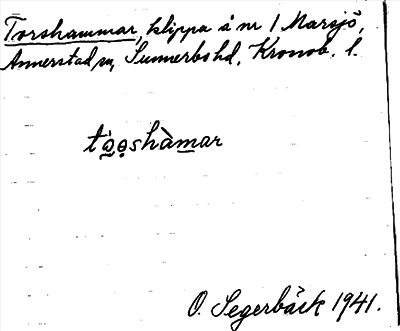 Torshammar, klippa å nr 1 Marsjö,
Annerstad sn, Sunnerbo hd, Kronob. l.
tòoshàmar
O. Segerbäck 1941.